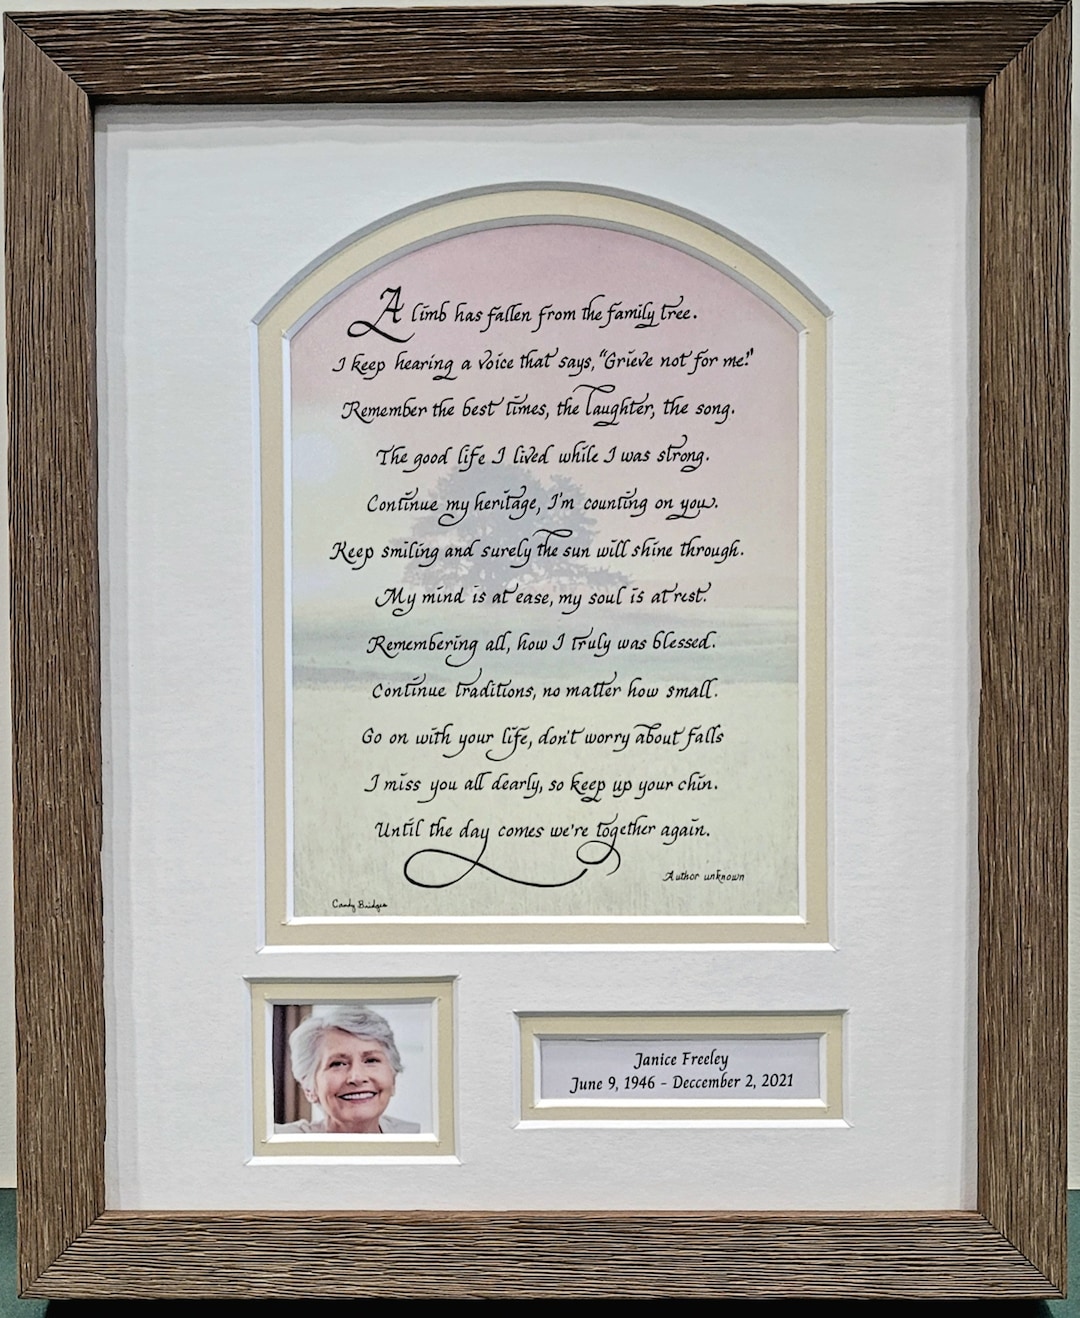 A limb has fallen from the family tree.
I keep hearing a voice that says, "Grieve not for me."
Remember the best times, the laughter, the song.
The good life I lived while I was strong.
Continue my heritage, I'm counting on you.
Keep smiling and surely the sun will shine through.
My mind is at ease, my soul is at rest.
Remembering all, how I truly was blessed.
Continue traditions, no matter how small.
Go on with your life, don't worry about falls
I miss you all dearly, so keep up your chin.
Until the day comes we're together again.
Author unknown
Candy Bridges
Janice Freeley
June 9, 1946 - Deccember 2, 2021